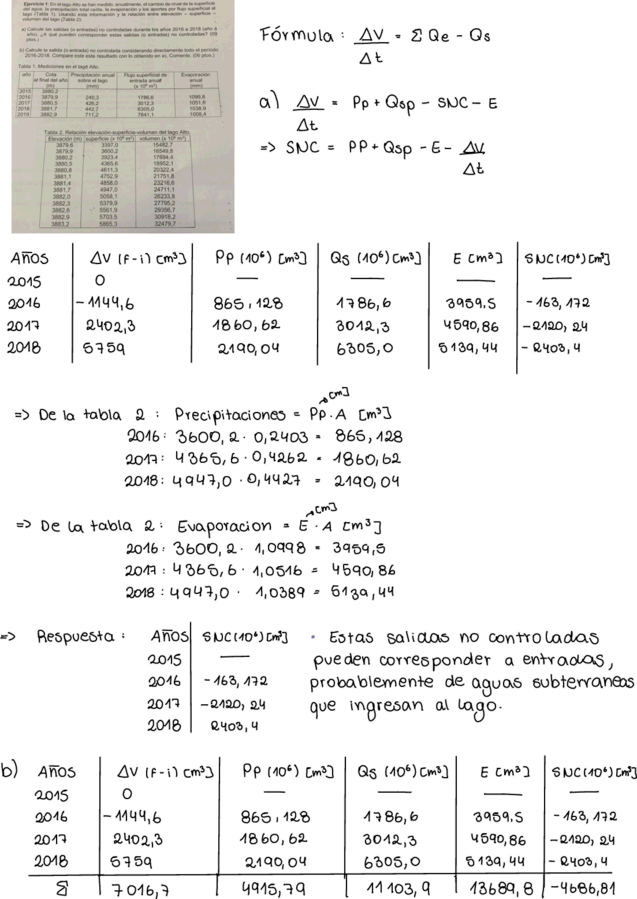 Ejercicio 1: En el lago Alto se han medido, anualmente, el cambio de nivel de la superficie
del agua, la precipitación total caída, la evaporación y los aportes por flujo superficial al
lago (Tabla 1). Usando esta información y la relación entre elevación – superficie –
volumen del lago (Tabla 2):
a) Calcule las salidas (o entradas) no controladas durante los años 2016 a 2018 (año a
año). ¿A qué pueden corresponder estas salidas (o entradas) no controladas? (09
ptos.)
b) Calcule la salida (o entrada) no controlada considerando directamente todo el periodo
2016-2018. Compare este resultado con lo obtenido en a). Comente. (06 ptos.)
Tabla 1. Mediciones en el lago Alto.
año Cota al final del año (m) Precipitación anual sobre el lago (mm) Flujo superficial de entrada anual (x 10⁶ m³) Evaporación anual (mm)
2015 3880,2
2016 3879,9 240,3 1786,6 1099,8
2017 3880,5 426,2 3012,3 1051,6
2018 3881,7 442,7 6305,0 1038,9
2019 3882,9 711,2 7841,1
Tabla 2. Relación elevación-superficie-volumen del lago Alto.
Elevación (m) superficie (x 10⁶ m²) volumen (x 10⁶ m³)
3879,6 3397,0 15482,7
3879,9 3600,2
3880,2 3923,4
3880,5 4365,6 18952,1
3880,8 4611,3 20322,4
3881,1 4752,9 21751,8
3881,4 4858,0 23216,6
3881,7 4947,0 24711,1
3882,0 5058,1 26233,8
3882,3 5379,9 27795,2
3882,6 5561,9 29356,7
3882,9 5703,5 30918,2
3883,2 5865,3 32479,7
Fórmula : ΔV/Δt = Σ Qe - Qs
a) ΔV/Δt = Pp + Qsp - SNC - E
=> SNC = PP + Qsp - E - ΔV/Δt
AÑOS ΔV (F-i) [m³] PP (10⁶) [m³] QS (10⁶)[m³] E [m³] SNC(10⁶)[m³]
2015 0 — — — —
2016 -1144,6 865,128 1786,6 3959,5 -163,172
2017 2402,3 1860,62 3012,3 4590,86 -2120,24
2018 5759 2190,04 6305,0 5139,44 -2403,4
[m]
=> De la tabla 2 : Precipitaciones = PP · A [m³]
2016: 3600,2 · 0,2403 = 865,128
2017: 4365,6 · 0,4262 = 1860,62
2018: 4947,0 · 0,4427 = 2190,04
[m]
=> De la tabla 2 : Evaporacion = E · A [m³]
2016: 3600,2 · 1,0998 = 3959,5
2017: 4365,6 · 1,0516 = 4590,86
2018: 4947,0 · 1,0389 = 5139,44
=> Respuesta : AÑOS SNC(10⁶)[m³] · Estas salidas no controladas
2015 — pueden corresponder a entradas,
2016 -163,172 probablemente de aguas subterraneas
2017 -2120,24 que ingresan al lago.
2018 2403,4
b) AÑOS ΔV (F-i) [m³] PP (10⁶) [m³] QS (10⁶)[m³] E [m³] SNC(10⁶)[m³]
2015 0 — — — —
2016 -1144,6 865,128 1786,6 3959,5 -163,172
2017 2402,3 1860,62 3012,3 4590,86 -2120,24
2018 5759 2190,04 6305,0 5139,44 -2403,4
Σ 7016,7 4915,79 11103,9 13689,8 -4686,81